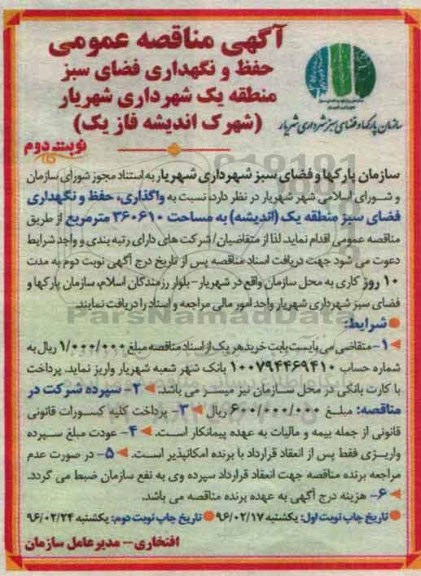 آگهی مناقصه عمومی
حفظ و نگهداری فضای سبز
منطقه یک شهرداری شهریار
(شهرک اندیشه فاز یک)
سازمان پارکها و فضای سبز شهرداری شهریار
نوبت دوم
سازمان پارکها و فضای سبز شهرداری شهریار به استناد مجوز شورای سازمان
و شورای اسلامی شهر شهریار در نظر دارد نسبت به واگذاری، حفظ و نگهداری
فضای سبز منطقه یک (اندیشه) به مساحت ۳۶۰۶۱۰ مترمربع از طریق
مناقصه عمومی اقدام نماید. لذا از متقاضیان/ شرکت های دارای رتبه بندی و واجد شرایط
دعوت می شود جهت دریافت اسناد مناقصه پس از تاریخ درج آگهی نوبت دوم به مدت
۱۰ روز کاری به محل سازمان واقع در شهریار - بلوار رزمندگان اسلام، سازمان پارکها و
فضای سبز شهرداری شهریار واحد امور مالی مراجعه و اسناد را دریافت نمایند.
ParsNamadData
شرایط:
۱- متقاضی می بایست بابت خرید هر یک از اسناد مناقصه مبلغ ۱/۰۰۰/۰۰۰ ریال به
شماره حساب ۱۰۰۷۹۴۴۶۹۴۱۰ بانک شهر شعبه شهریار واریز نماید. پرداخت
با کارت بانکی در محل سازمان نیز میسر می باشد. ۲- سپرده شرکت در
مناقصه: مبلغ ۶۰۰/۰۰۰/۰۰۰ ریال ۳- پرداخت کلیه کسورات قانونی
قانونی از جمله بیمه و مالیات به عهده پیمانکار است. ۴- عودت مبلغ سپرده
واریزی فقط پس از انعقاد قرارداد با برنده امکانپذیر است. ۵- در صورت عدم
مراجعه برنده مناقصه جهت انعقاد قرارداد سپرده وی به نفع سازمان ضبط می گردد.
۶- هزینه درج آگهی به عهده برنده مناقصه می باشد.
تاریخ چاپ نوبت اول: یکشنبه ۹۶/۰۲/۱۷ تاریخ چاپ نوبت دوم: یکشنبه ۹۶/۰۲/۲۴
افتخاری - مدیرعامل سازمان